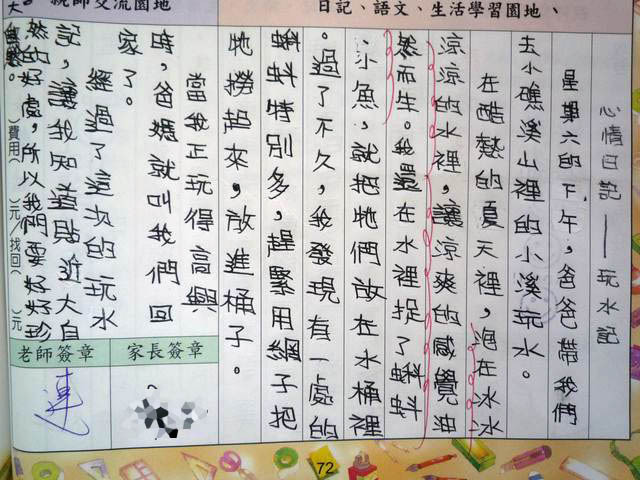 日記、語文、生活學習園地、
心情日記──玩水記
星期六的下午，爸爸帶我們
去小礁溪山裡的小溪玩水。
在酷熱的夏天裡，泡在冰冰
涼涼的水裡，讓涼爽的感覺油
然而生。我還在水裡捉了蝌蚪
、小魚，就把牠們放在水桶裡
。過了不久，我發現有一處的
蝌蚪特別多，趕緊用網子把
牠撈起來，放進桶子。
當我正玩得高興
時，爸媽就叫我們回
家了。
經過了這次的玩水
記，讓我知道貼近大自
然的好處，所以我們要好好珍
親師交流園地
大
(費用) )元/找回( )元
家長簽章
老師簽章
連
72